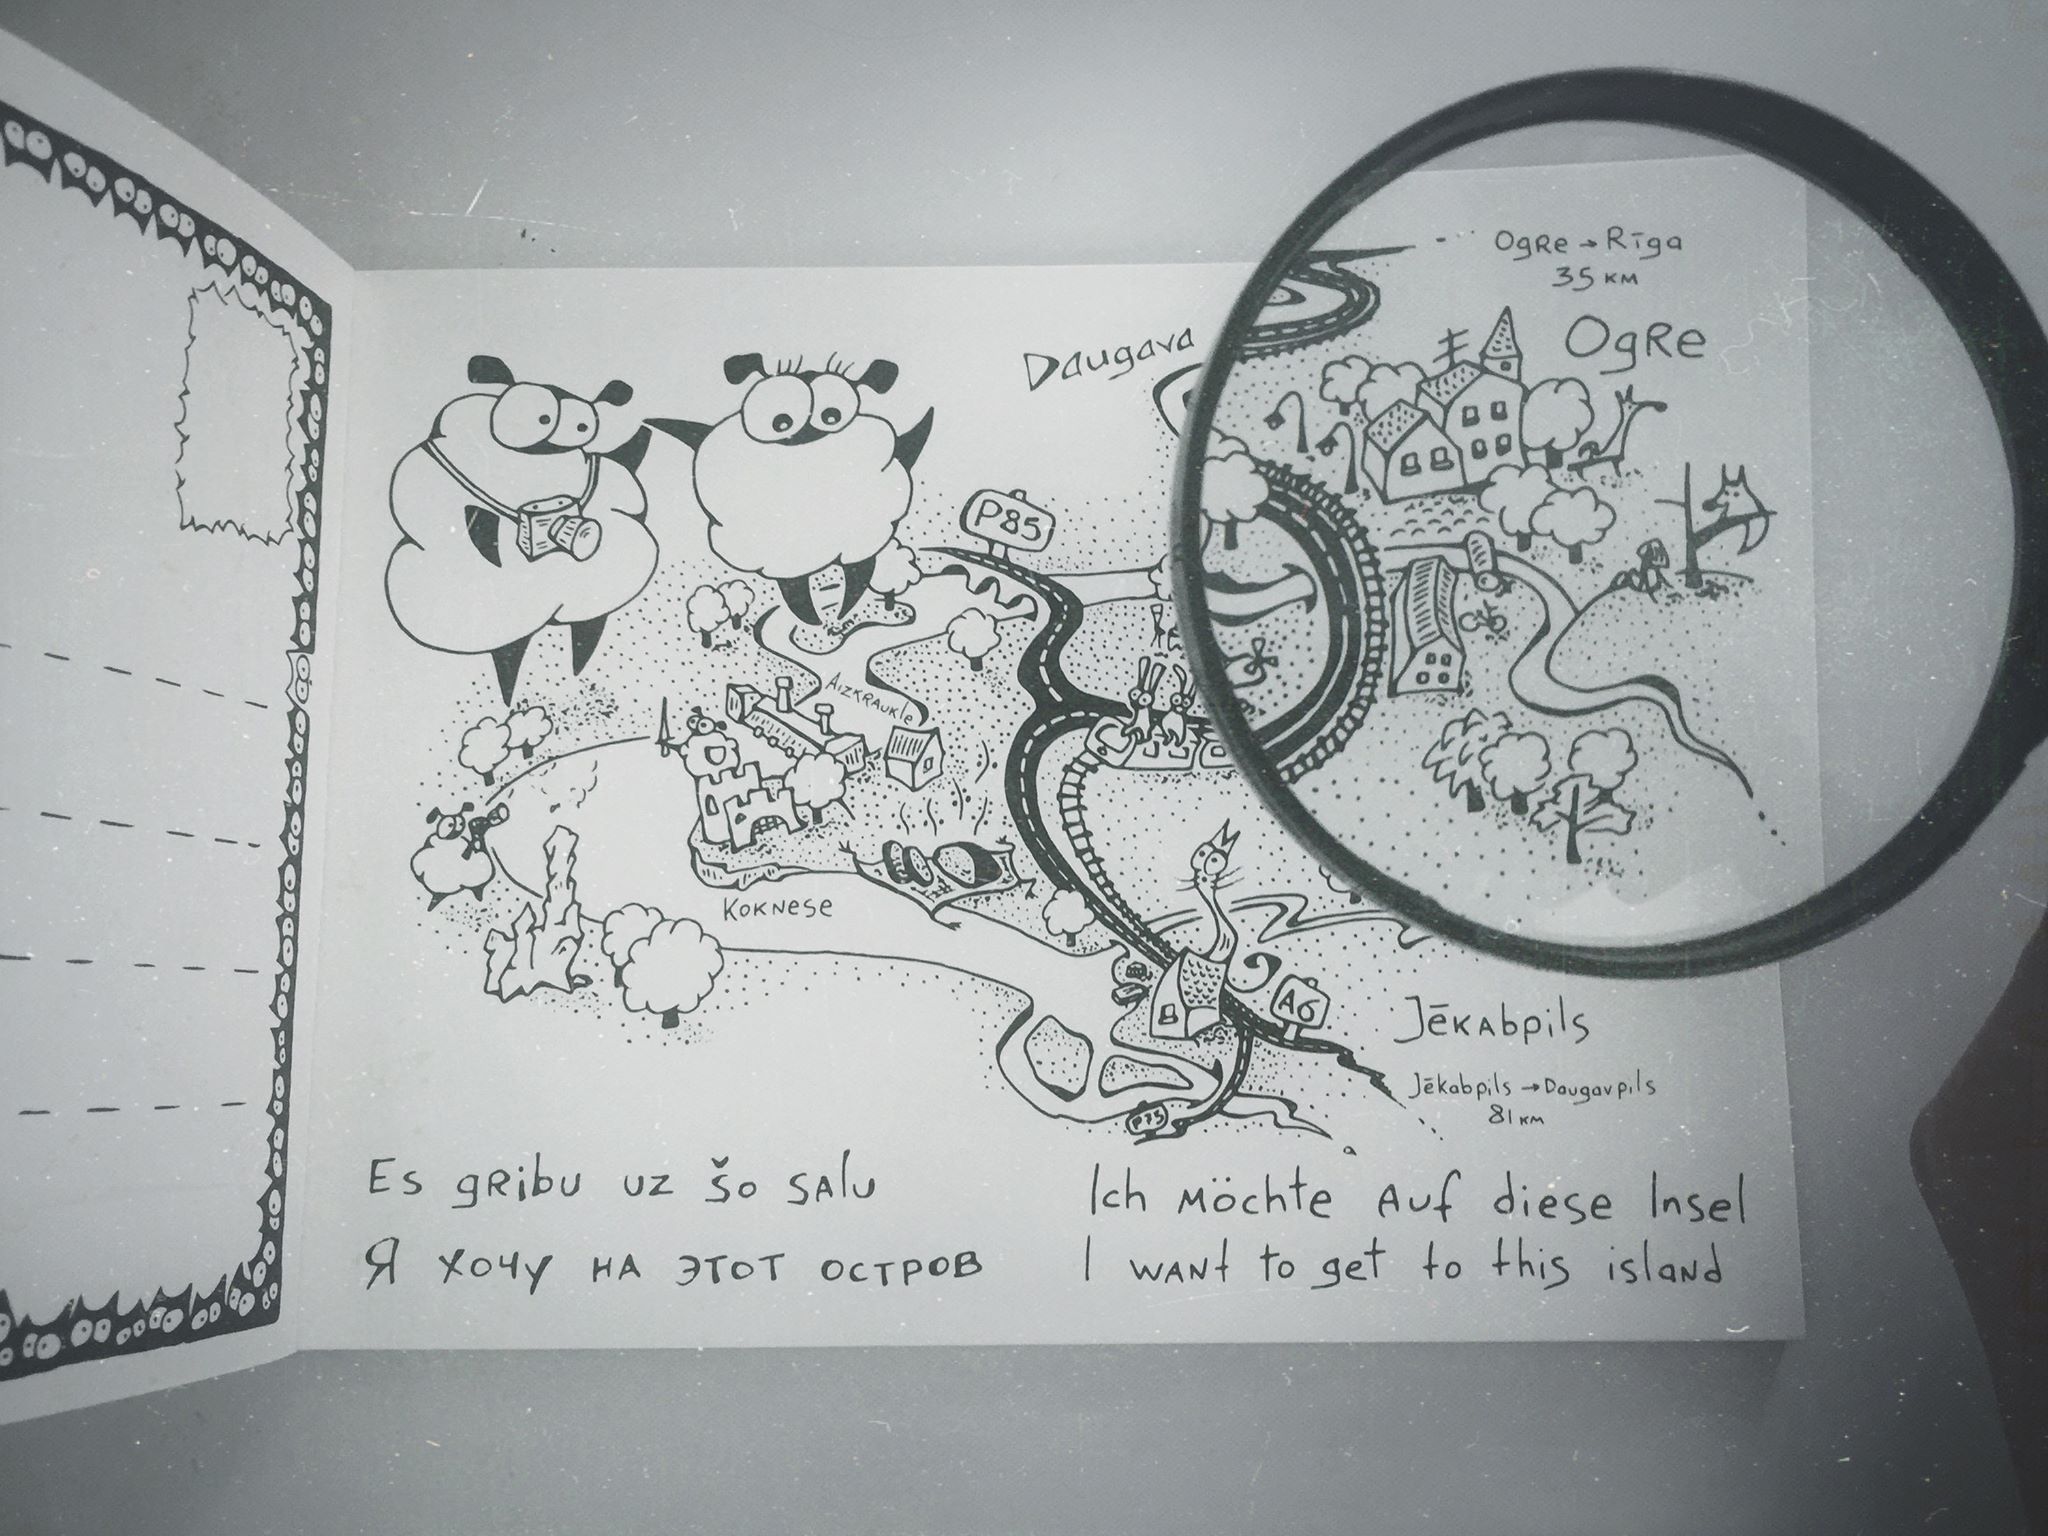 Ogre → Rīga
35 км
Ogre
Daugava
P85
Aizkraukle
Koknese
A6
Jēkabpils
Jēkabpils → Daugavpils
81 км
P75
Es gribu uz šo salu
Я хочу на этот остров
Ich möchte auf diese Insel
I want to get to this island